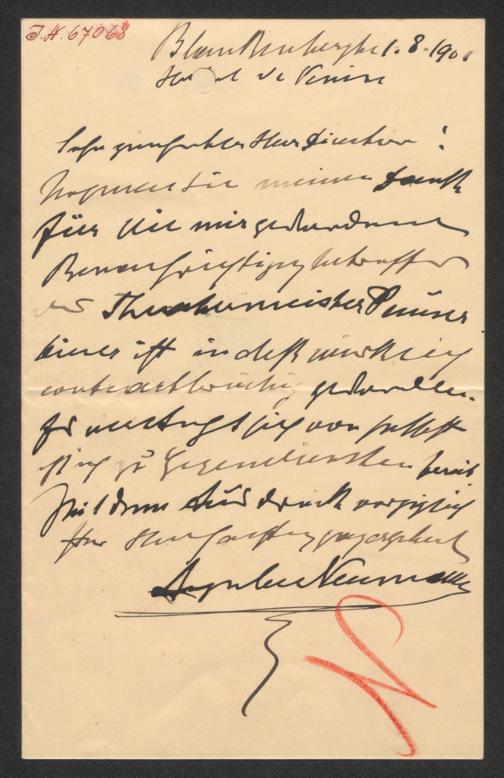 J.N. 67068
Blankenberghe 1.8.190
Hotel de Venise
Sehr geehrtester Herr Direktor!
Nehmen Sie meinen Dank
für die mir gewordene
Benachrichtigung betreffs
des Theatermeisters
ist indeß wirklich
contractbrüchig geworden.
Es versteht sich von selbst
ich zu Gegendiensten bereit
Mit dem Ausdruck vorzüglich
ster Hochachtung ergebenst
Angelo Neumann
N